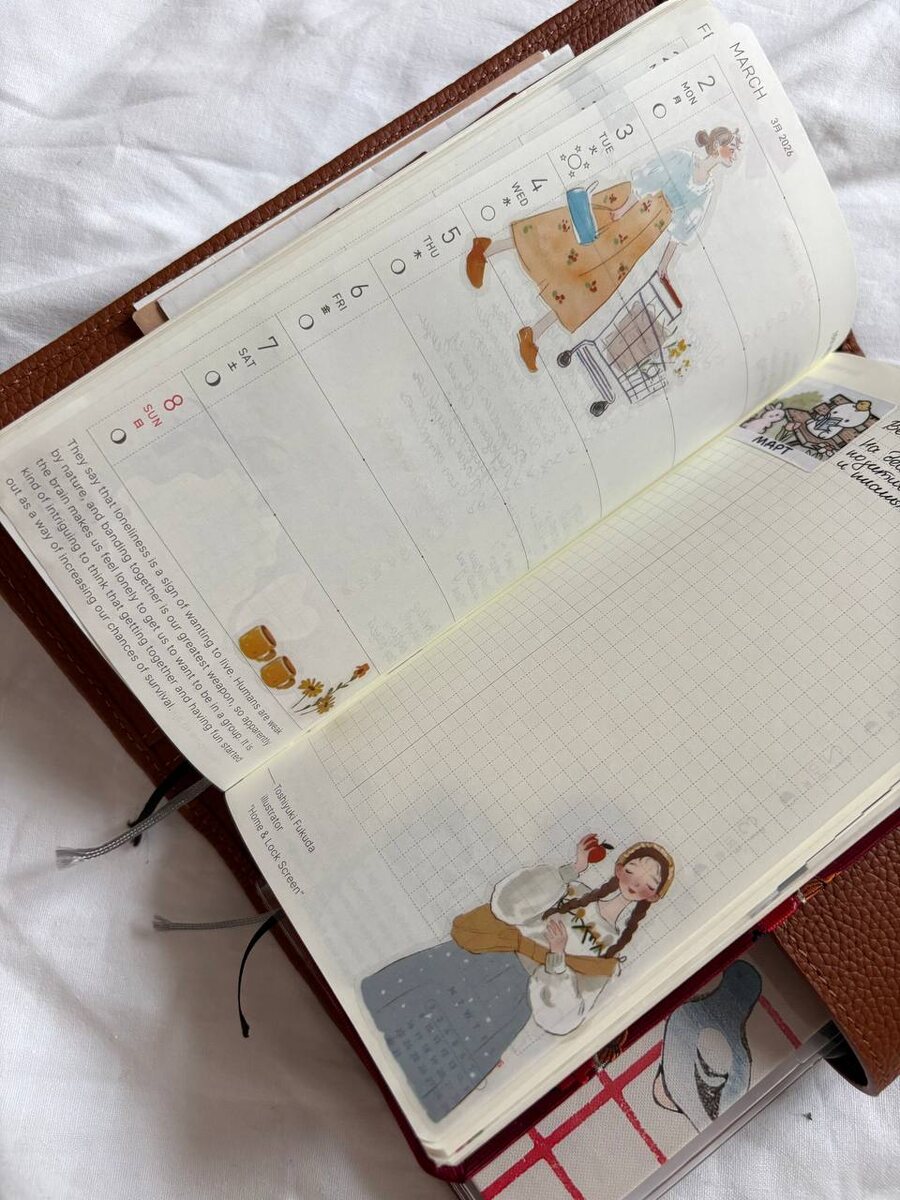 MARCH
3月 2026
2
MON
月
3
TUE
火
4
WED
水
5
THU
木
6
FRI
金
7
SAT
土
8
SUN
日
They say that loneliness is a sign of wanting to live. Humans are weak
by nature, and banding together is our greatest weapon, so apparently
the brain makes us feel lonely to get us to want to be in a group. It is
kind of intriguing to think that getting together and having fun started
out as a way of increasing our chances of survival.
Toshiyuki Fukuda
illustrator
"Home & Lock Screen"
МАРТ